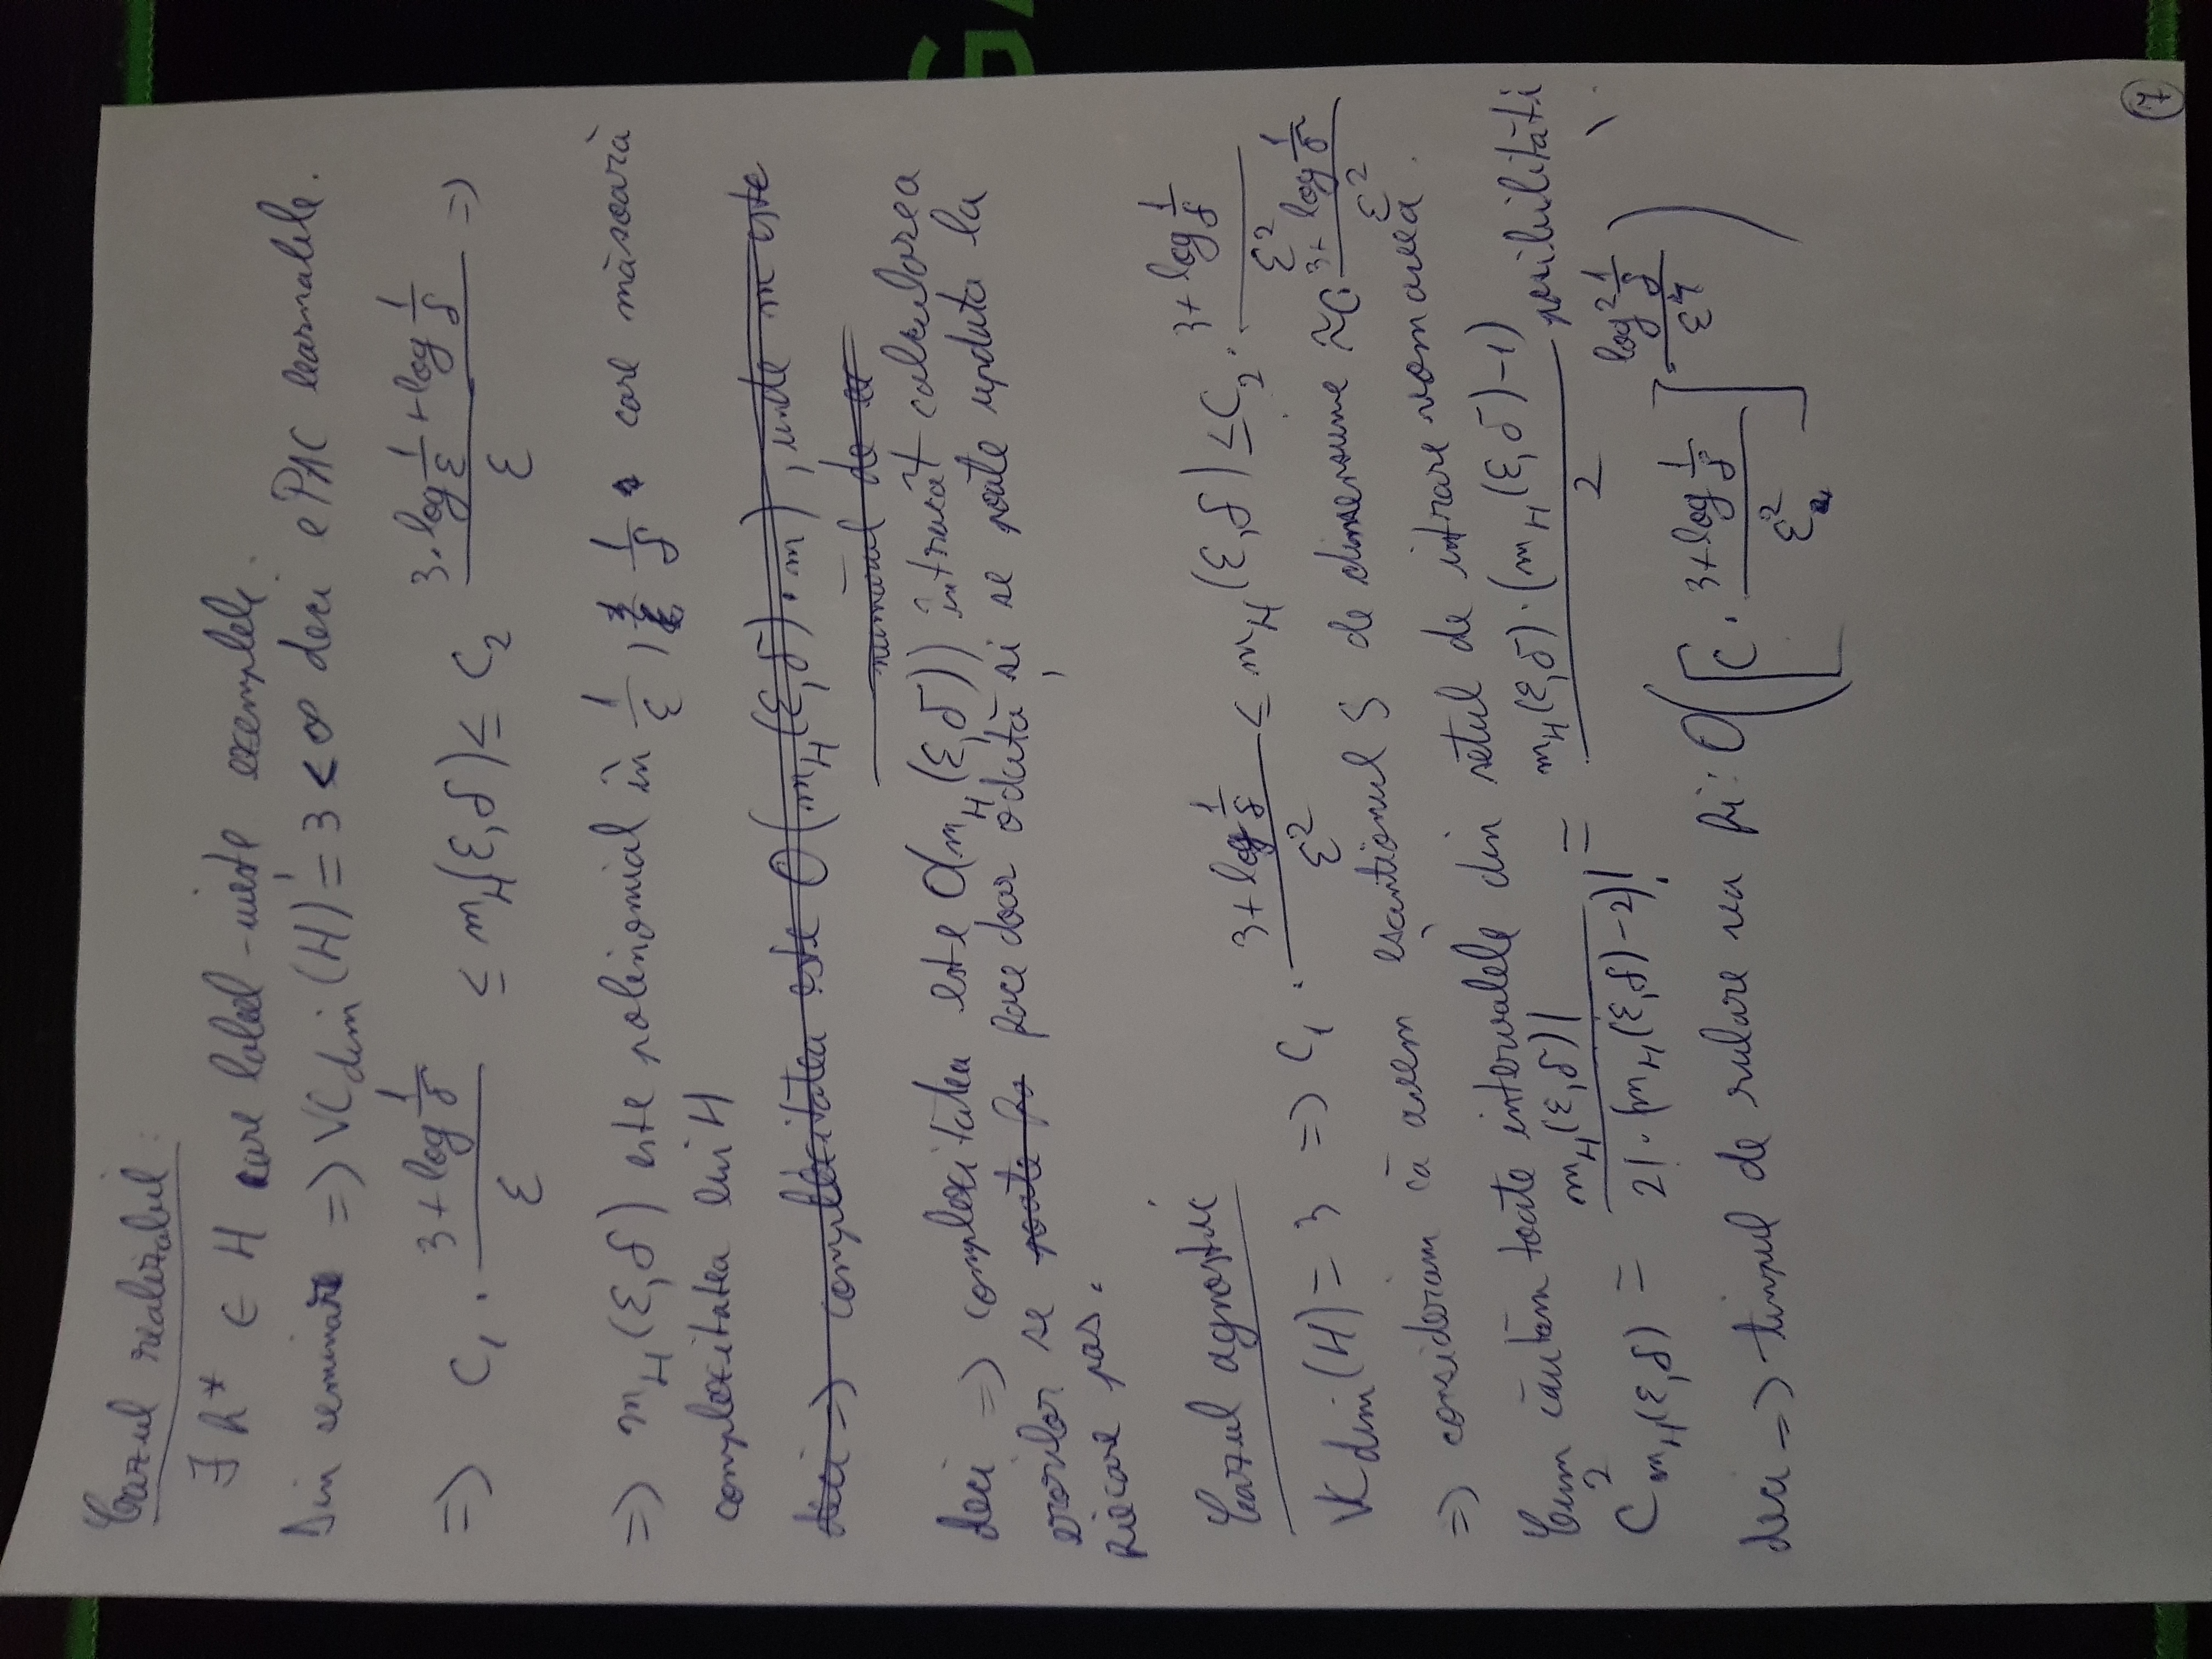 Cazul realizabil:
∃ h* ∈ H care label-uieste exemplele.
Din seminar => VCdim(H) = 3 < ∞ deci e PAC learnable.
=> C₁ · (3 + log 1/δ)/ε ≤ m_H(ε,δ) ≤ C₂ (3·log 1/ε + log 1/δ)/ε =>
=> m_H(ε,δ) este polinomial în 1/ε, 1/δ care măsoară
complexitatea lui H
deci => complexitatea este O(m_H(ε,δ)·m), unde m este
numărul de ex
deci => complexitatea este O(m_H(ε,δ)) întrucât calcularea
erorilor se poate fa face doar odată și se poate updata la
fiecare pas.
Cazul agnostic
VCdim(H) = 3 => C₁ · (3 + log 1/δ)/ε² ≤ m_H(ε,δ) ≤ C₂ · (3 + log 1/δ)/ε²
=> considerăm că avem eșantionul S de dimensiune ≈ C· (3 + log 1/δ)/ε²
Cum căutăm toate intervalele din setul de intrare vom avea
C²_{m_H(ε,δ)} = m_H(ε,δ)! / (2!·(m_H(ε,δ)-2)!) = m_H(ε,δ)·(m_H(ε,δ)-1) / 2 posibilități
deci => timpul de rulare va fi: O([C · (3 + log 1/δ)/ε²]^{(log² 1/δ)/ε⁴})
7